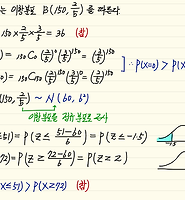 는 이항분포 B(150, 2/5) 를 따른다
150 × 2/5 × 3/5 = 36 (참)
) = ₁₅₀C₀ (2/5)⁰ (3/5)¹⁵⁰ = (3/5)¹⁵⁰
) = ₁₅₀C₁₅₀ (2/5)¹⁵⁰ (3/5)⁰ = (2/5)¹⁵⁰
∴ P(X=0) > P(X
150, 2/5) ~ N(60, 6²)
이항분포를 정규분포로 근사
≤51) = P(Z ≤ (51-60)/6) = P(Z ≤ -1.5)
-1.5
72) = P(Z ≥ (72-60)/6) = P(Z ≥ 2)
X≤51) > P(X≥72) (참)